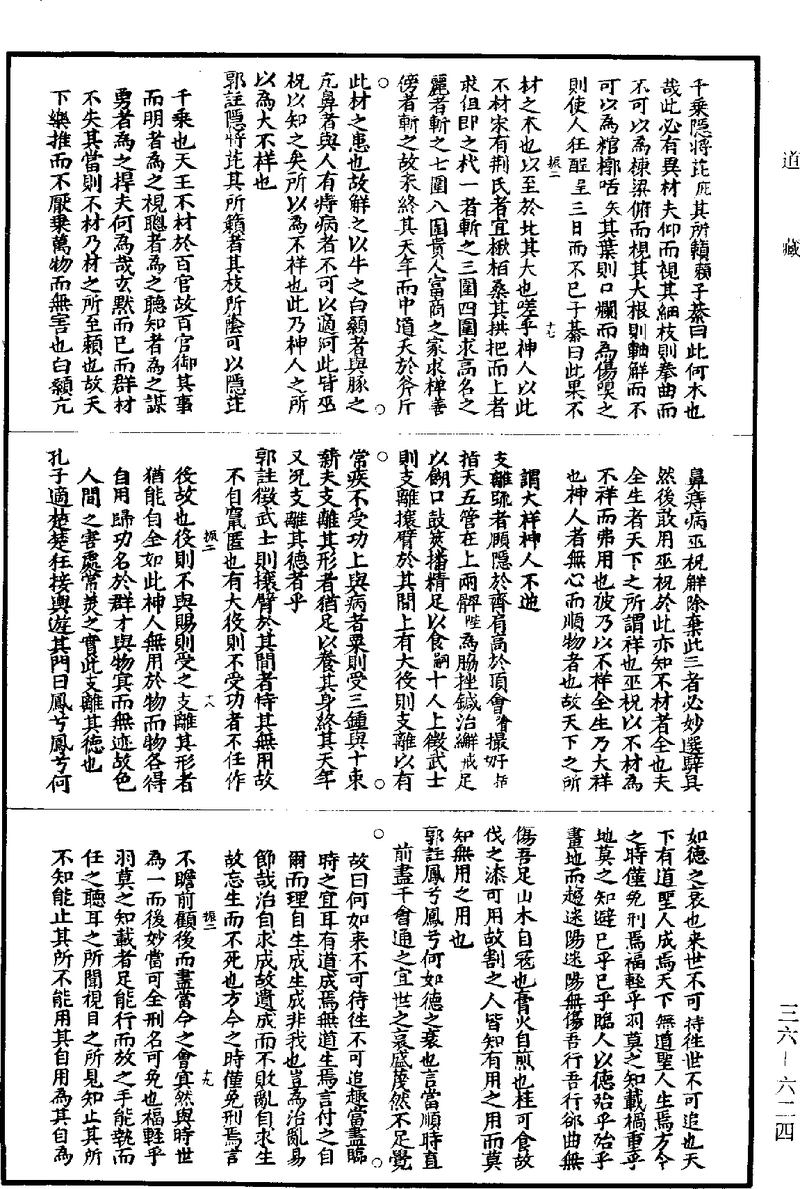 道藏
千乘隱將芘庇其所籟賴子綦曰此何木也
哉此必有異材夫仰而視其細枝則拳曲而
不可以為棟梁俯而視其大根則軸解而不
可以為棺槨咶矢其葉則口爛而為傷嗅之
則使人狂酲呈三日而不已子綦曰此果不
振二 十七
材之木也以至於此其大也嗟乎神人以此
不材宋有荆氏者宜楸栢桑其拱把而上者
求狙即之杙一者斬之三圍四圍求高名之
麗者斬之七圍八圍貴人富商之家求樿善
傍者斬之故未終其天年而中道夭於斧斤
此材之患也故解之以牛之白顙者與豚之
亢鼻者與人有痔病者不可以適河此皆巫
祝以知之矣所以為不祥也此乃神人之所
以為大不祥也
郭註隱將芘其所籟者其枝所蔭可以隱芘
千乘也天王不材於百官故百官御其事
而明者為之視聰者為之聽知者為之謀
勇者為之捍夫何為哉玄默而已而群材
不失其當則不材乃材之所至賴也故天
下樂推而不厭乘萬物而無害也白顙亢
鼻痔病巫祝解除棄此三者必妙選騂具
然後敢用巫祝於此亦知不材者全也夫
全生者天下之所謂祥也巫祝以不材為
不祥而弗用也彼乃以不祥全生乃大祥
也神人者無心而順物者也故天下之所
謂大祥神人不逆
支離疏者頤隱於齊肩高於頂會膾撮好括
指天五管在上兩髀陛為脇挫鍼治繲戒足
以餬口鼓筴播精足以食嗣十人上徵武士
則支離攘臂於其間上有大役則支離以有
常疾不受功上與病者粟則受三鍾與十束
薪夫支離其形者猶足以養其身終其天年
又況支離其德者乎
郭註徵武士則攘臂於其間者恃其無用故
不自竄匿也有大役則不受功者不任作
振二 十八
役故也役則不與賜則受之支離其形者
猶能自全如此神人無用於物而物各得
自用歸功名於群才與物冥而無迹故免
人間之害處常美之實此支離其德也
孔子適楚楚狂接輿遊其門曰鳳兮鳳兮何
如德之衰也來世不可待徃世不可追也天
下有道聖人成焉天下無道聖人生焉方今
之時僅免刑焉福輕乎羽莫之知載禍重乎
地莫之知避已乎已乎臨人以德殆乎殆乎
畫地而趨迷陽迷陽無傷吾行吾行郤曲無
傷吾足山木自寇也膏火自煎也桂可食故
伐之漆可用故割之人皆知有用之用而莫
知無用之用也
郭註鳳兮鳳兮何如德之衰也言當順時直
前盡乎會通之宜世之衰盛蔑然不足覺
故曰何如來不可待徃不可追趣當盡臨
時之宜耳有道成焉無道生焉言付之自
爾而理自生成生成非我也豈為治亂易
節哉治自求成故遺成而不敗亂自求生
故忘生而不死也方今之時僅免刑焉言
振二 十九
不瞻前顧後而盡當今之會冥然與時世
為一而後妙當可全刑名可免也福輕乎
羽莫之知載者足能行而放之手能執而
任之聽耳之所聞視目之所見知止其所
不知能止其所不能用其自用為其自為
三六－六二四